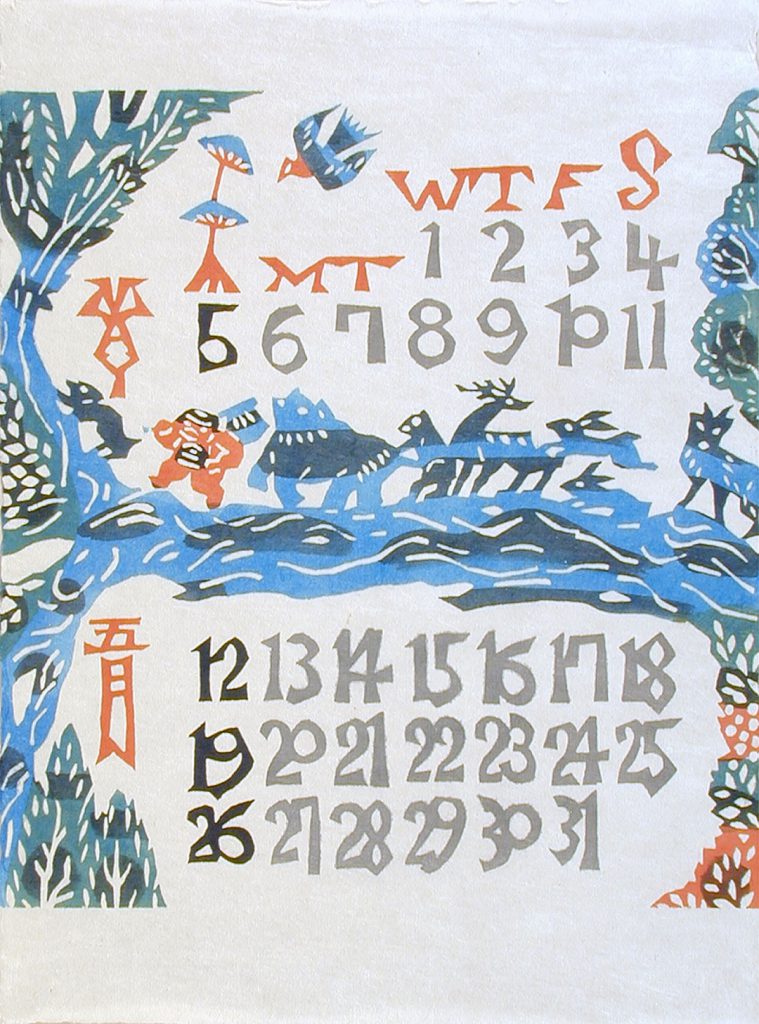 W T F S
1 2 3 4
M T
MAY
5 6 7 8 9 10 11
五月
12 13 14 15 16 17 18
19 20 21 22 23 24 25
26 27 28 29 30 31